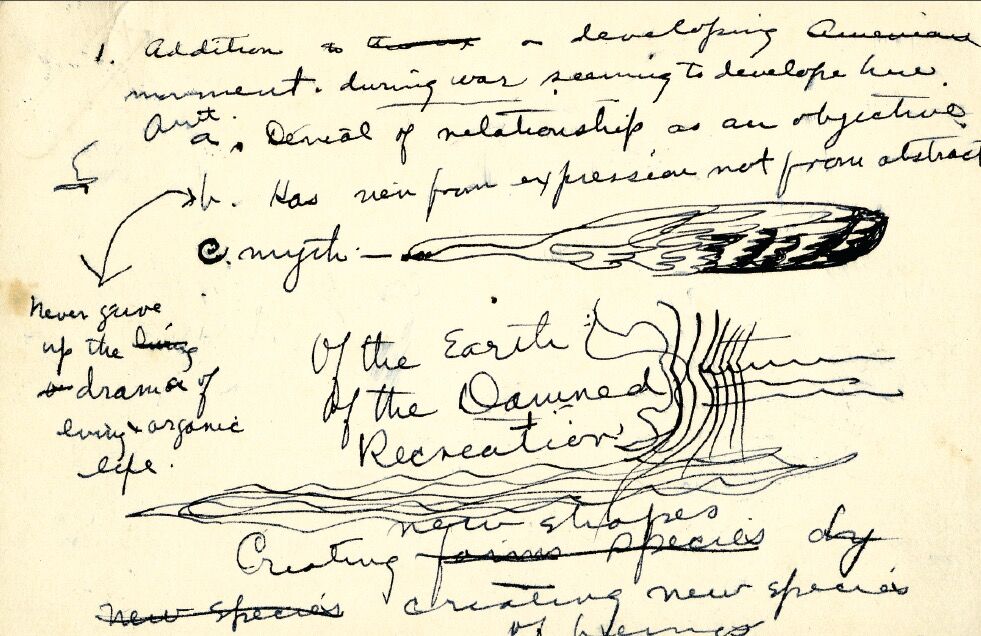 1. Addition to a developing American
movement. during war seeming to develope here.
Art.
a. Denial of relationship as an objective
b. Has view from expression not from abstract
c. myth —
Never gave
up the living
drama of
living & organic
life.
Of the Earth
Of the Damned
Recreation
new shapes
Creating forms species by
New species creating new species
of beings